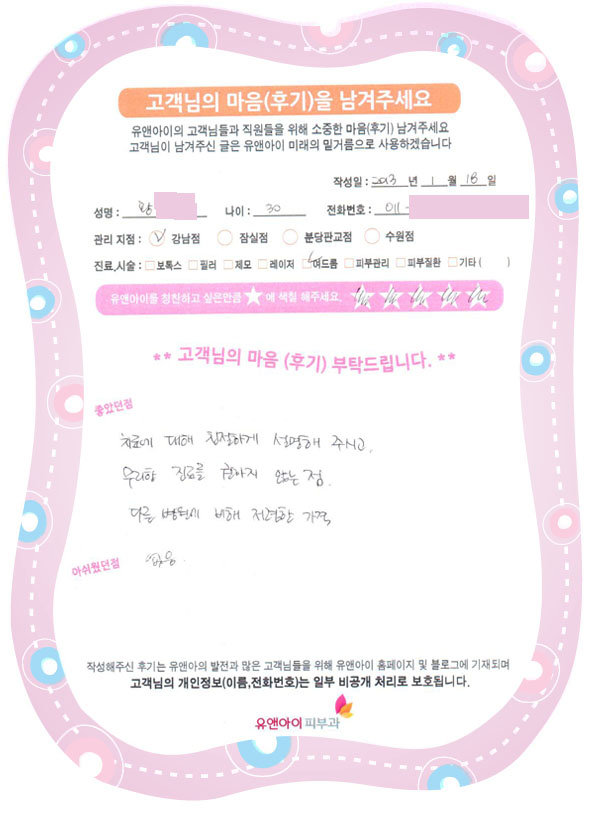 고객님의 마음(후기)을 남겨주세요
유앤아이의 고객님들과 직원들을 위해 소중한 마음(후기) 남겨주세요
고객님이 남겨주신 글은 유앤아이 미래의 밑거름으로 사용하겠습니다
작성일 : 2013 년 1 월 18 일
성명 : 황 나이 : 30 전화번호 : 011-
관리 지점 : 강남점 잠실점 분당판교점 수원점
진료,시술 : 보톡스 필러 제모 레이저 여드름 피부관리 피부질환 기타 ( )
유앤아이를 칭찬하고 싶은만큼 ★에 색칠 해주세요.
** 고객님의 마음 (후기) 부탁드립니다. **
좋았던점
치료에 대해 친절하게 설명해 주시고,
무리한 진료를 권하지 않는 점.
다른 병원에 비해 저렴한 가격
아쉬웠던점 없음.
작성해주신 후기는 유앤아의 발전과 많은 고객님들을 위해 유앤아이 홈페이지 및 블로그에 기재되며
고객님의 개인정보(이름,전화번호)는 일부 비공개 처리로 보호됩니다.
유앤아이피부과